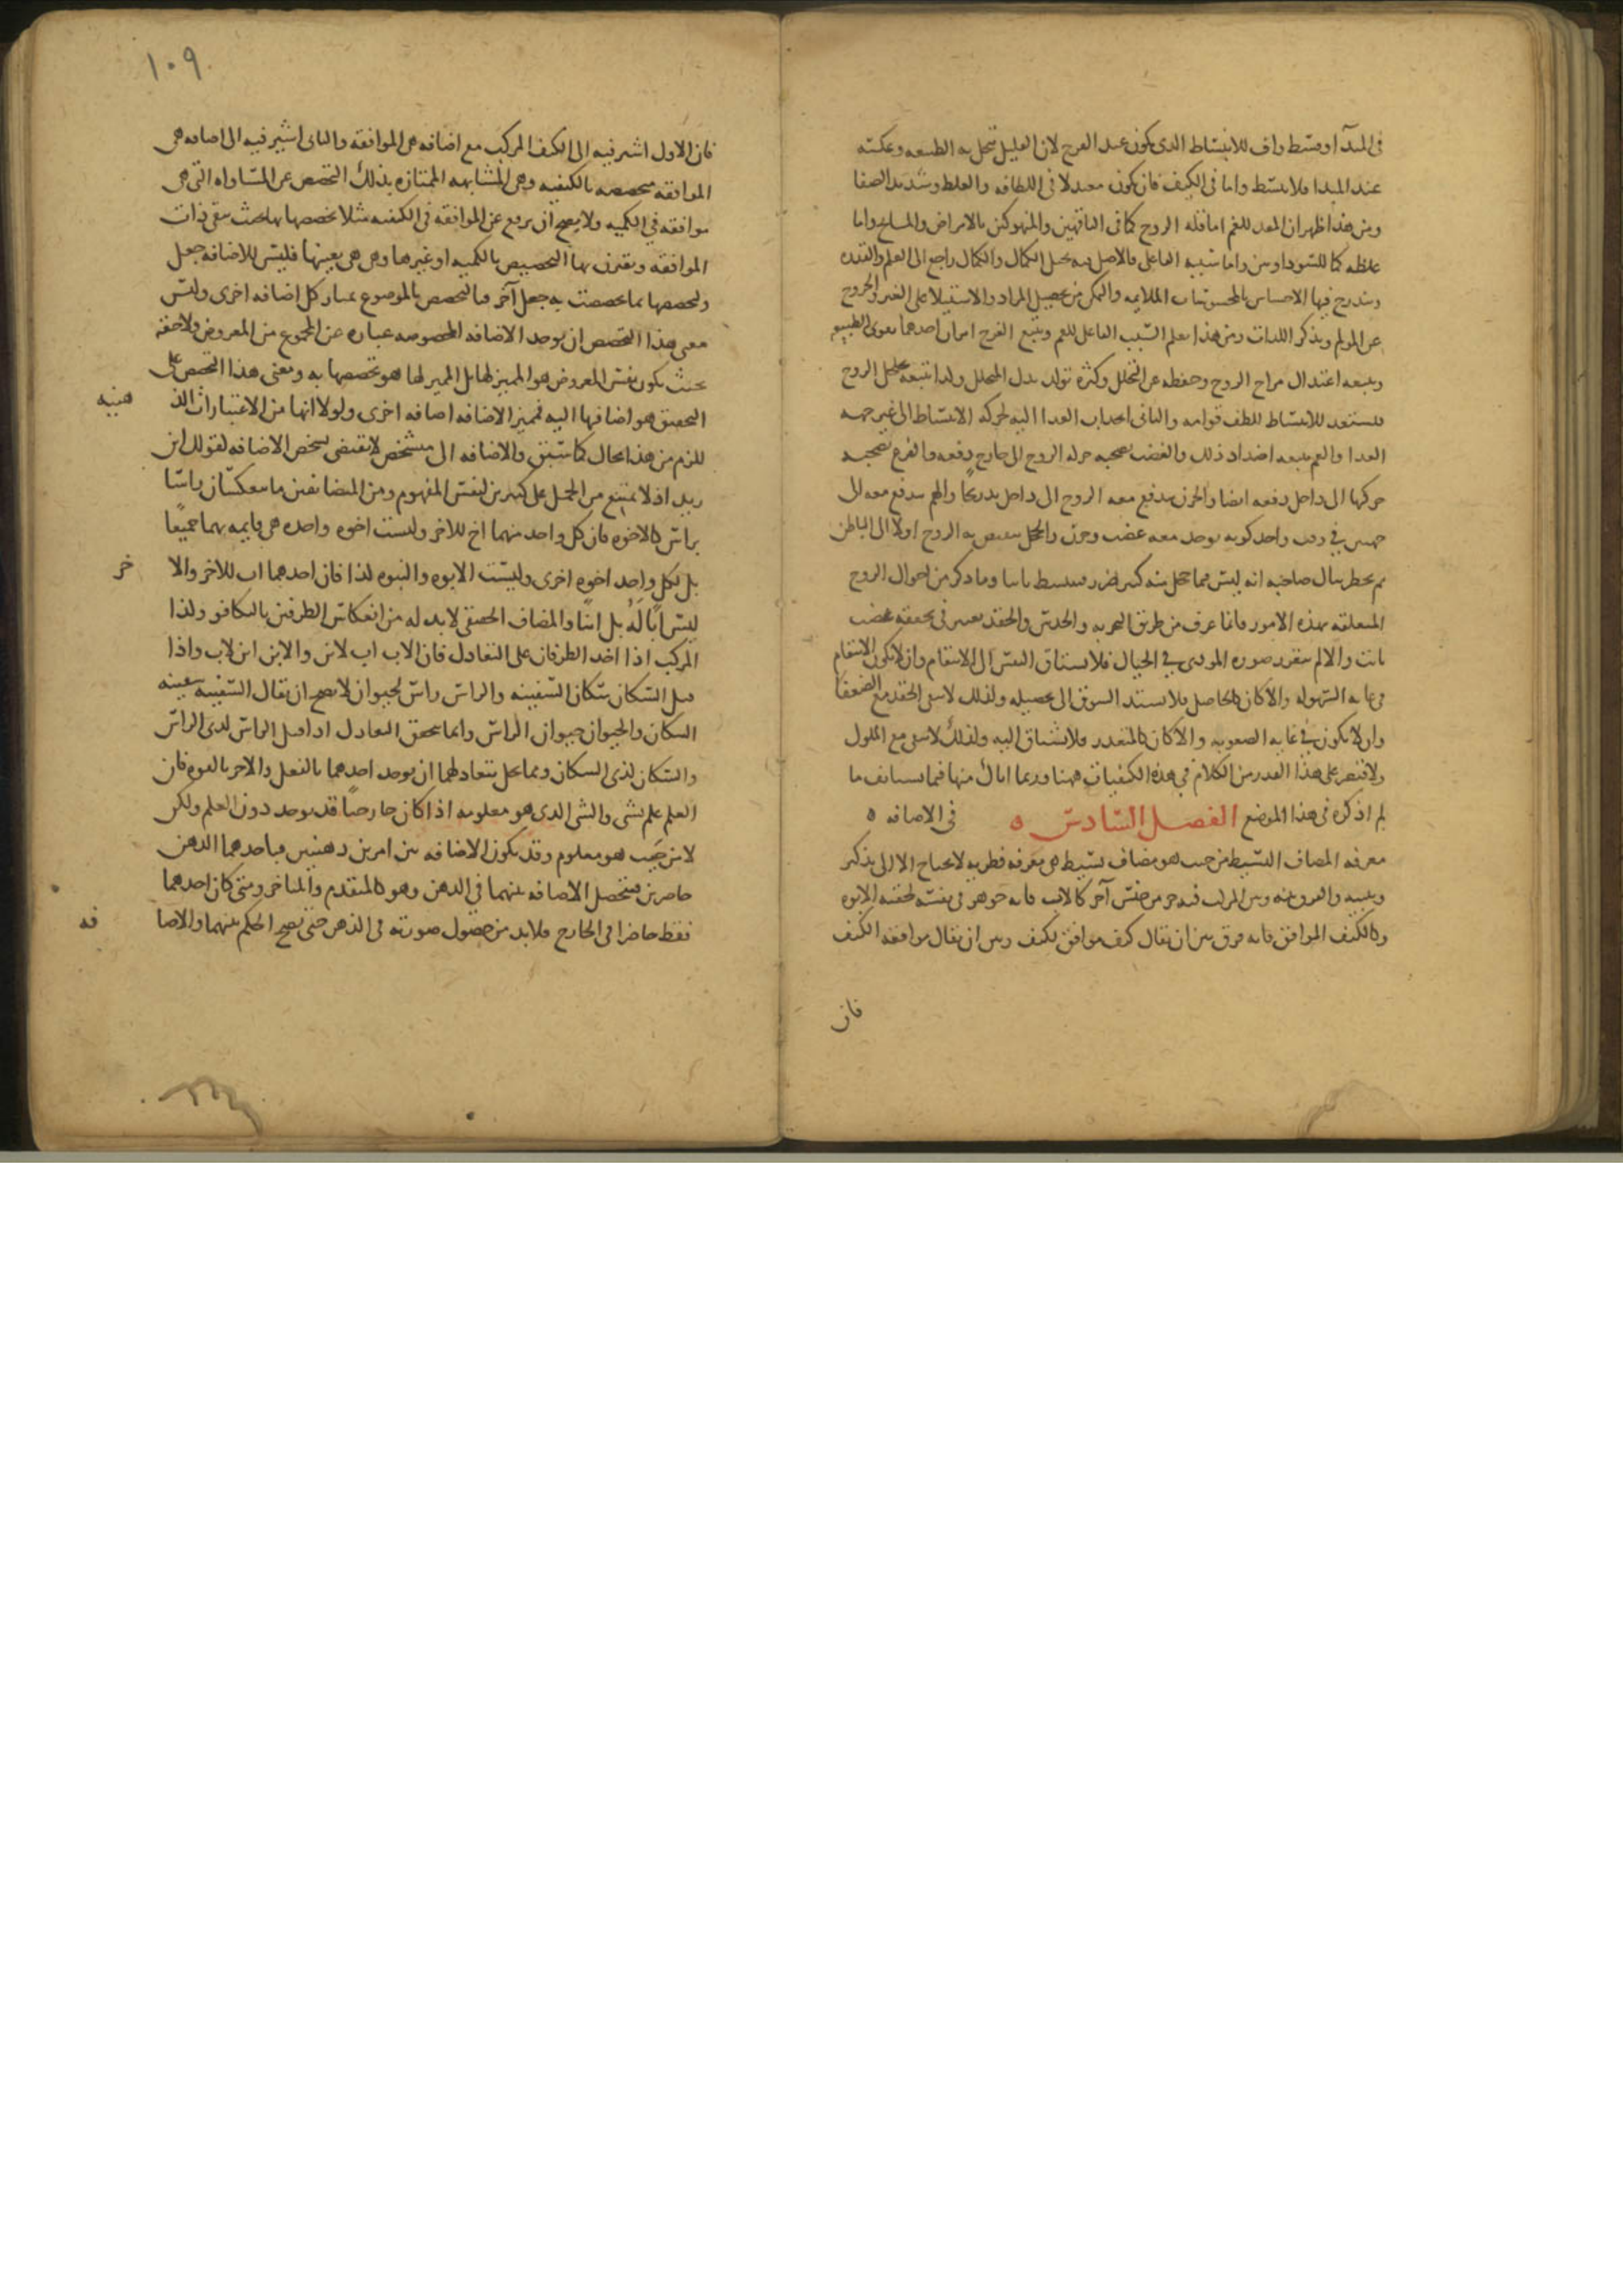 فى المبدأ وقسط واف للانبساط الذى يكون عند الفرح لان القليل تبخل به الطبيعه وتمسكه
عند المبدا فلا ينبسط واما فى الكيف فان يكون معتدلا فى اللطافه والغلظ وشديد الصفا
ومن هذا ظهر ان المعد للغم اما قله الروح كما فى الناقهين والمنهوكين بالامراض والمسايخ واما
غلظه كما للسوداويين واما سببه الفاعلى فالاصل فيه تخيل الكمال والكمال راجع الى العلم والقدره
ويندرج فيها الاحساس بالمحسوسات الملايمه والتمكن من تحصيل المراد والاستيلا على الغير والخروج
عن المولم وتذكر اللذات ومن هذا يعلم السبب الفاعل للغم ويتبع الفرح امران احدهما تقوى الطبيعه
ويتبعه اعتدال مزاج الروح وحفظه عن التحلل وكثره تولد بدل المتحلل والثانى تخلخل الروح
فيستعد للانبساط للطف قوامه والثانى انجذاب الغذا اليه لحركه الانبساط الى غير جهه
الغذا والغم يتبعه اضداد ذلك والغضب يصحبه حركه الروح الى خارج دفعه والفزع يصحبه
حركتها الى داخل دفعه ايضا والحزن يندفع معه الروح الى داخل تدريجا والهم يندفع معه الى
جهتين فى وقت واحد كونه يوجد معه غضب وحزن والخجل ينقبض به الروح اولا الى الباطن
ثم يخطر ببال صاحبه انه ليس مما خجل منه كثير ضرر فينبسط ثانيا وما ذكر من احوال الروح
المتعلقه بهذه الامور فانما عرف من طريق التجربه والحدس والحقد يعتبر فى تحققه غضب
ثابت والا لم يتقرر صوره الموذى فى الخيال فلا يشتاق النفس الى الانتقام وان لا يكون الانتقام
فى غايه السهوله والا كان كالحاصل فلا يشتد الشوق الى تحصيله ولذلك لا يبقى الحقد مع الضعفا
وان لا يكون فى غايه الصعوبه والا كان كالمتعذر فلا يشتاق اليه ولذلك لا يبقى مع الملوك
ولاقتصر على هذا القدر من الكلام فى هذه الكيفيات ههنا وربما اتاك منها فيما يستانف ما
لم اذكره فى هذا الموضع الفصل السادس فى الاضافه
معرفه المضاف البسيط من حيث هو مضاف بسيط هى معرفه فطريه لا يحتاج الا الى تذكير
وتنبيه والفرق بينه وبين المركب فيه جز من جنس آخر كالاب فانه جوهر فى نفسه لحقته الابوه
وكالكيف الموافق فانه فرق بين ان يقال كيف موافق لكيف وبين ان يقال موافقه الكيف
فان
١٠٩
فان الاول اشير فيه الى الكيف المركب مع اضافه هى الموافقه والثانى اشير فيه الى اضافه هى
الموافقه مخصصه بالكيفيه وهى المشابهه الممتازه بذلك التخصص عن المساواه التى هى
موافقه فى الكميه ولا يصح ان يرفع عن الموافقه فى الكيفيه مثلا تخصصها بها بحيث يبقى ذات
الموافقه ويقترن بها التخصيص بالكميه او غيرها وهى هى بعينها فليس للاضافه جعل
ولتخصصها بما تخصصت به جعل آخر فبالتخصص بالموضوع يمتاز كل اضافه اخرى وليس
معنى هذا التخصص ان يوجد الاضافه المخصوصه عباره عن المجموع من المعروض ولاحقه
بحيث يكون نفس المعروض هو المميز لها بل المميز لها هو تخصصها به ومعنى هذا التخصص على
التحقيق هو اضافتها اليه فتميز الاضافه اضافه اخرى ولولا انها من الاعتبارات الذ هنيه
للزم من هذا محال كما سبق والاضافه الى متشخص لا تقتضى تشخص الاضافه لقولك ابن
زيد اذ لا يمتنع من الحمل على كثيرين لنفس المفهوم ومن المتضايفين ما ينعكسان راسا
براس كالاخوه فان كل واحد منهما اخ للاخر وليست اخوه واحده هى قايمه بهما جميعا
بل لكل واحد اخوه اخرى وليست الابوه والبنوه كذا فان احدهما اب للاخر والا خر
ليس ابا له بل ابنا والمضاف الحقيقى لابد له من انعكاس الطرفين بالتكافو ولذا
المركب اذا اخذ الطرفان على التعادل فان الاب اب لابن والابن ابن لاب واذا
قيل السكان سكان السفينه والراس راس لحيوان لا يصح ان يقال السفينه سفينه
السكان والحيوان حيوان الراس وانما تحقق التعادل اذا قيل الراس لذى الراس
والسكان لذى السكان ومما يخل بتعادلهما ان يوجد احدهما بالفعل والاخر بالقوه فان
العلم علم بشى والشى الذى هو معلومه اذا كان خارجيا قد يوجد دون العلم ولكن
لا من حيث هو معلوم وقد يكون الاضافه بين امرين ذهنيين فياخدهما الذهن
حاضرين فتحصل الاضافه بينهما فى الذهن وهو كالمتقدم والمتاخر ومتى كان احدهما
فقط حاضرا فى الخارج فلابد من حصول صورته فى الذهن حتى يصح الحكم بينهما والاضا فه